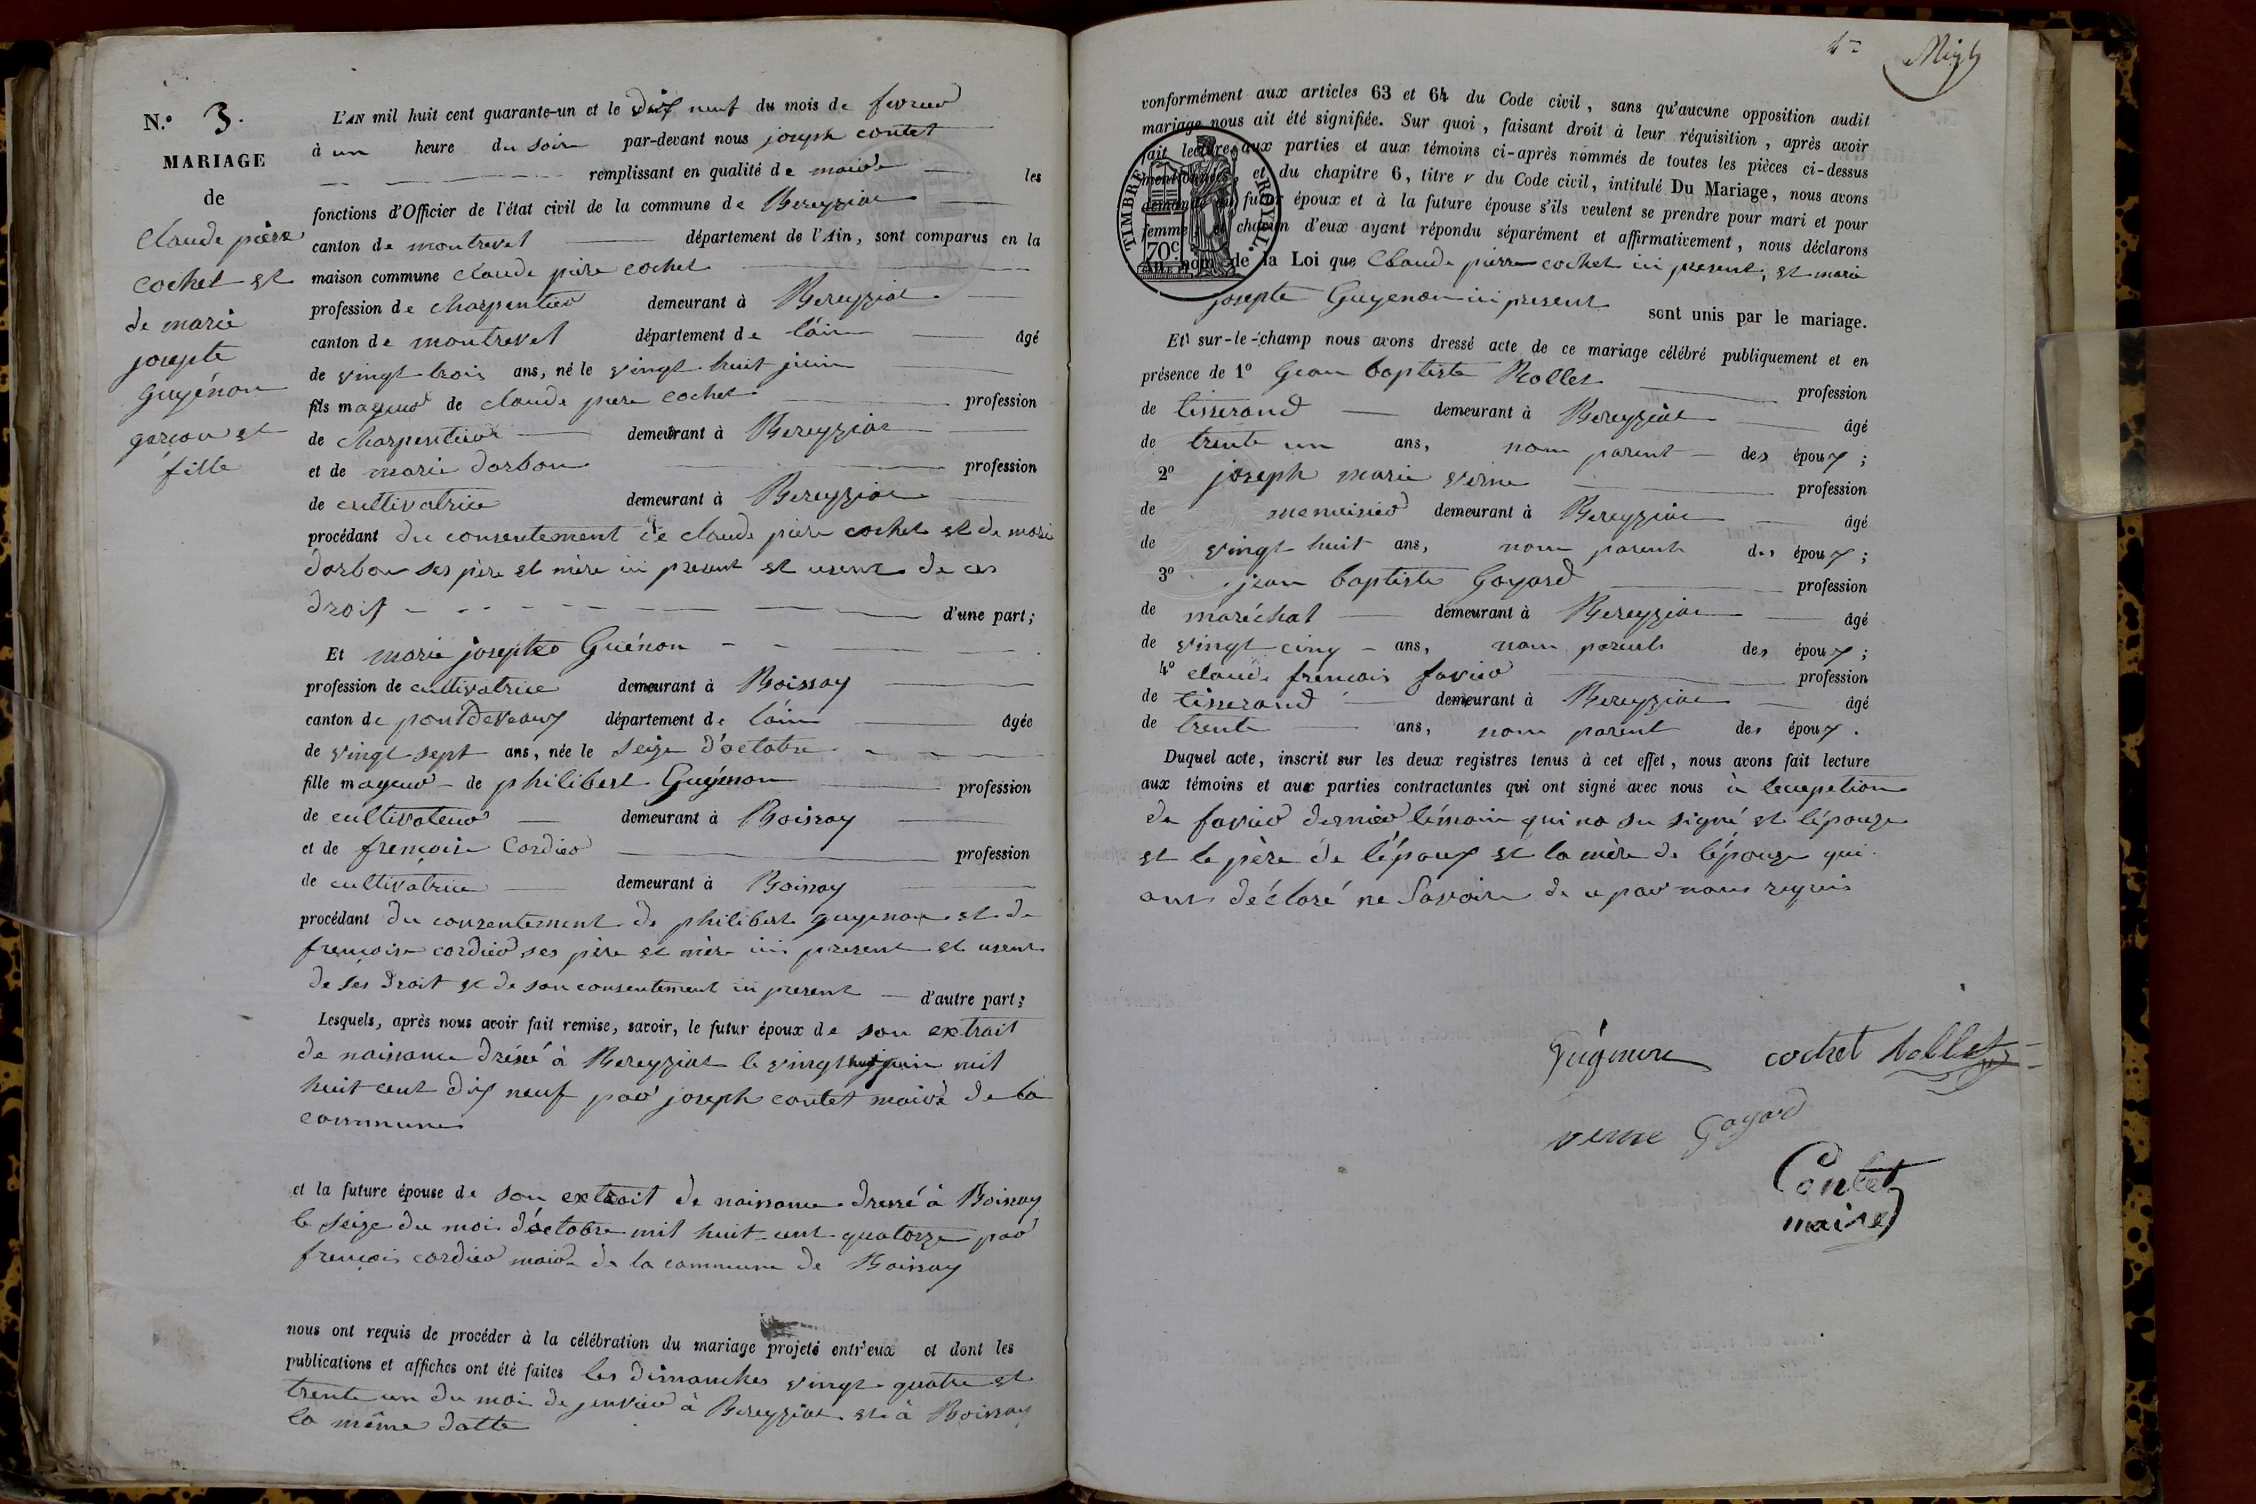 N.º 3.
MARIAGE
de
Claude pierre
cochet et
de marie
josepte
guyénon
garçon et
fille
L'AN mil huit cent quarante-un et le dix neuf du mois de fevrier
à un heure du soir par-devant nous joseph contet
remplissant en qualité de maire les
fonctions d'Officier de l'état civil de la commune de Bereyziat
canton de montrevel département de l'Ain, sont comparus en la
maison commune claude piere cochet
profession de charpentier demeurant à Bereyziat
canton de montrevel département de lain âgé
de vingt trois ans, né le vingt huit juin
fils mageur de claude piere cochet profession
de charpentier demeurant à Bereyziat
et de marie darbon profession
de cultivatrice demeurant à Bereyziat
procédant du consentement de claude piere cochet et de marie
darbon ses père et mère ici present et usent de ces
droit d'une part;
Et marie josepte Guénon
profession de cultivatrice demeurant à Boissay
canton de pontdevaux département de lain âgée
de vingt sept ans, née le seize d'octobre
fille mageur de philibert Guyénon profession
de cultivateur demeurant à Boissay
et de françoise Cordier profession
de cultivatrice demeurant à Boissay
procédant du consentement de philibert guyenon et de
françoise cordier ses père et mère ici present et usent
de ses droit et de son consentement ici present d'autre part;
Lesquels, après nous avoir fait remise, savoir, le futur époux de son extrait
de naissance dréssé à Bereyziat le vingt huit juin mil
huit cent dix neuf par joseph contet maire de la
commune
et la future épouse de son extrait de naissance dressé à Boissay
le seize du moi d'octobre mil huit cent quatorze par
françois cordier maire de la commune de Boissay
nous ont requis de procéder à la célébration du mariage projeté entr'eux et dont les
publications et affiches ont été faites les dimanches vingt quatre et
trente un du moi de jenvier à Bereyziat et à Boissay
la même datte
conformément aux articles 63 et 64 du Code civil, sans qu'aucune opposition audit
mariage nous ait été signifiée. Sur quoi, faisant droit à leur réquisition, après avoir
fait lecture aux parties et aux témoins ci-après nommés de toutes les pièces ci-dessus
mentionnées, et du chapitre 6, titre V du Code civil, intitulé Du Mariage, nous avons
demandé au futur époux et à la future épouse s'ils veulent se prendre pour mari et pour
femme; et chacun d'eux ayant répondu séparément et affirmativement, nous déclarons
Au nom de la Loi que Claude pierre cochet ici present, et marie
josepte Guyenon ici present sont unis par le mariage.
TIMBRE ROYAL.
70c
Et sur-le-champ nous avons dressé acte de ce mariage célébré publiquement et en
présence de 1º Gean baptiste Rollet profession
de tisserand demeurant à Bereyziat âgé
de trente un ans, nom parent des époux;
2º joseph marie verne profession
de menuisier demeurant à Bereyziat âgé
de vingt huit ans, nom parent des époux;
3º jean baptiste Goyard profession
de maréchal demeurant à Bereyziat âgé
de vingt cinq ans, nom parent des époux;
4º claude francois favier profession
de tisserand demeurant à Bereyziat âgé
de trente ans, nom parent des époux.
Duquel acte, inscrit sur les deux registres tenus à cet effet, nous avons fait lecture
aux témoins et aux parties contractantes qui ont signé avec nous à lexception
de favier dernier témoin qui na su signé et l'épouze
et le père de l'époux et la mère de l'épouze qui
ont déclaré ne savoir de ce par nous requis
Guyénon cochet Rollet
verne Goyard
Contet
maire